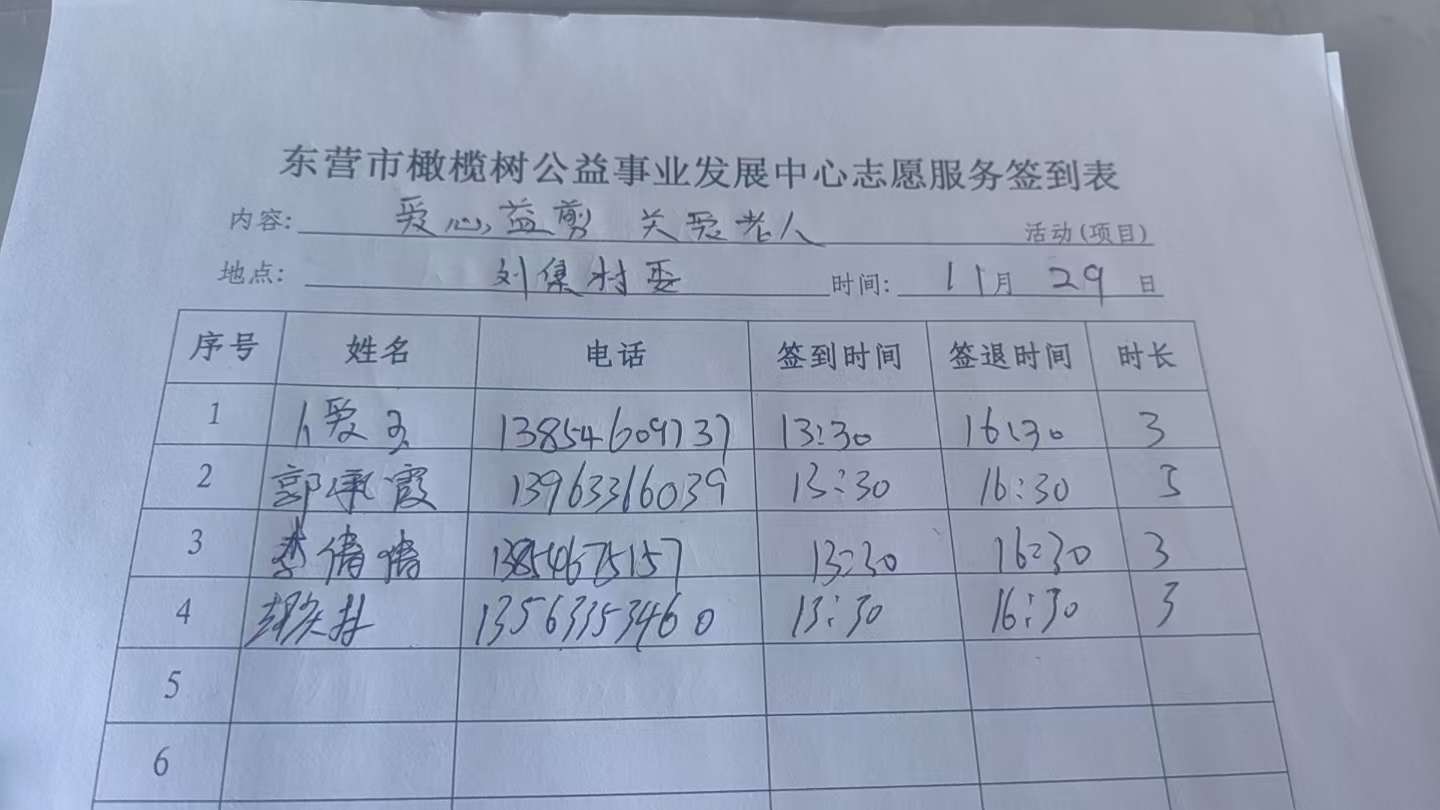 东营市橄榄树公益事业发展中心志愿服务签到表
内容: 爱心益剪 关爱老人 活动(项目)
地点: 刘集村委 时间: 11月 29 日
序号 姓名 电话 签到时间 签退时间 时长
1 爱玉 13854609737 13:30 16:30 3
2 郭承霞 13963316039 13:30 16:30 3
3 李倩倩 13854675157 13:30 16:30 3
4 13563353460 13:30 16:30 3
5
6